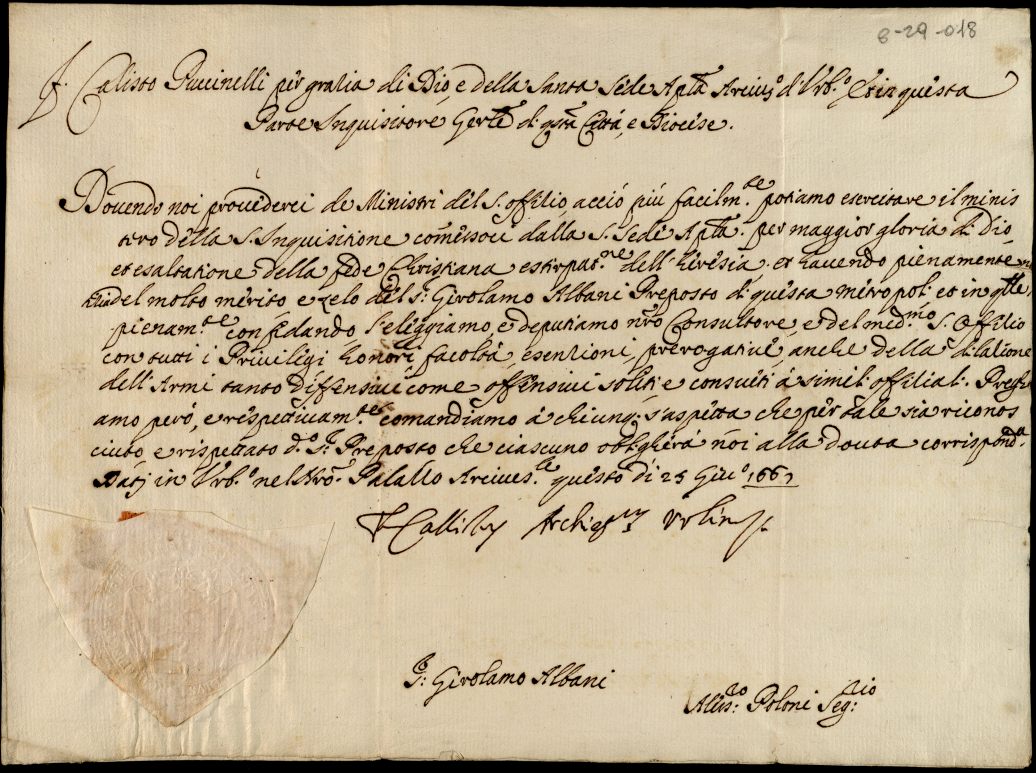 8-29-018
F. Calisto Puccinelli per gratia di Dio e della Santa Sede Aplca Arciuo d'Vrbo Et in questa
Parte Inquisitore Gerle di qsta Città, e Diocese.
Douendo noi prouederci de Ministri del S. offitio, acciò più facilmte potiamo esercitare il minis
tero della S. Inquisitione comessoci dalla S. Sede Aplca. per maggior gloria di Dio,
et esaltatione della fede Christiana estirpatne dell'heresia, et hauendo pienamente
del molto merito e zelo del S: Girolamo Albani Preposto di questa metropol: et in qlle
pienamte confidando, l'eliggiamo, e deputiamo nro Consultore, e del medmo S. Offitio
con tutti i Priuilegi honori, facoltà, esentioni, prerogatiue, anche della dilatione
dell'Armi tanto diffensiue come offensiui soliti e consueti à simili offitiali. Preghi
amo però, e respettiuamte comandiamo à chiunq: s'aspetta che per tale sia riconos
ciuto e rispettato do S: Preposto che ciascuno oblighera noi alla douta corrisponda.
Datj in Vrbo nel nro Palazzo Arciuesle questo di 25 Giuo 1667
F Callistus Archiepus Vrbini
S: Girolamo Albani
Alessro Poloni Segrio